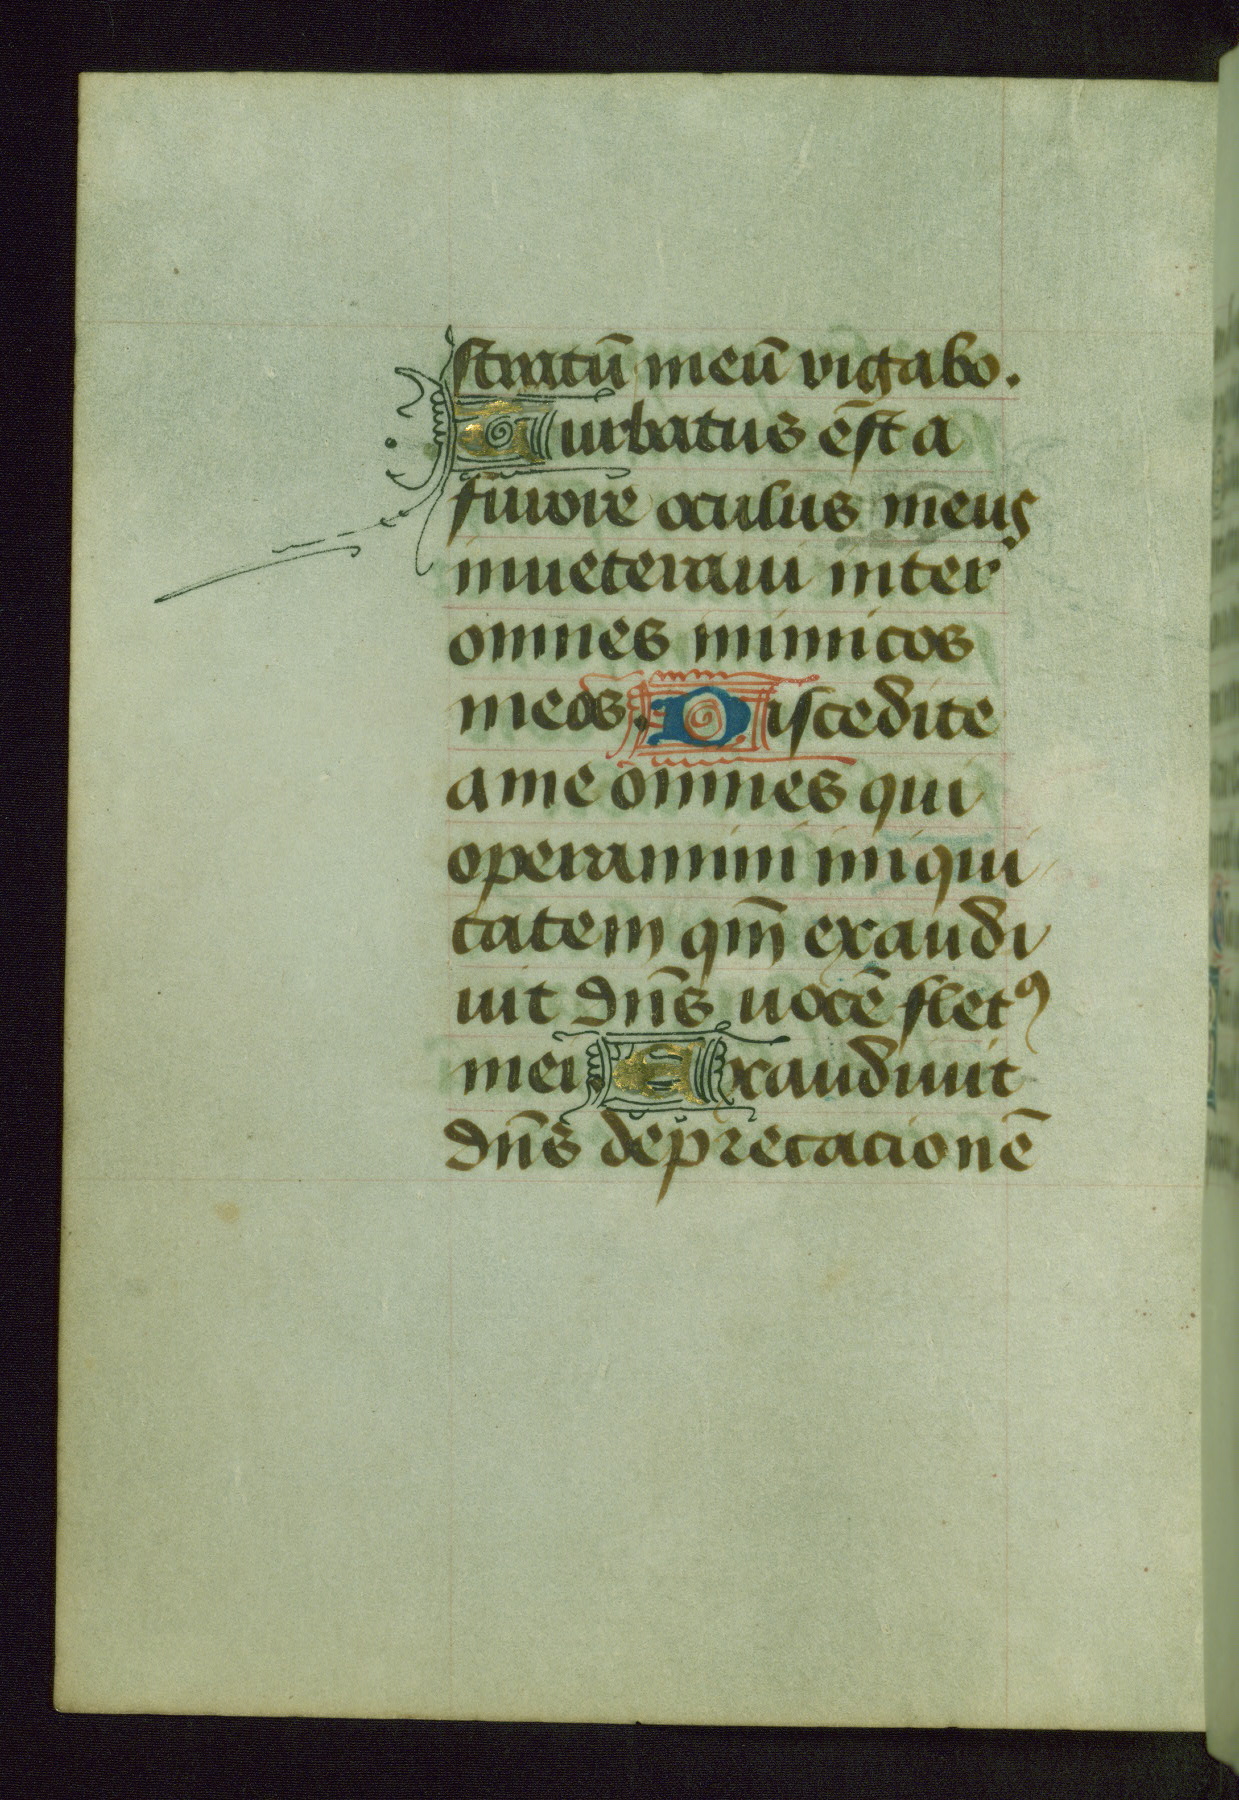 stratū meū rigabo.
Turbatus ēst a
furore oculus meus
inueteraui inter
omnes inimicos
meos. Discedite
a me omnes qui
operamini iniqui
tatem qm̄ exaudi
uit dn̄s uocē fletꝰ
mei Exaudiuit
dn̄s deprecacionē